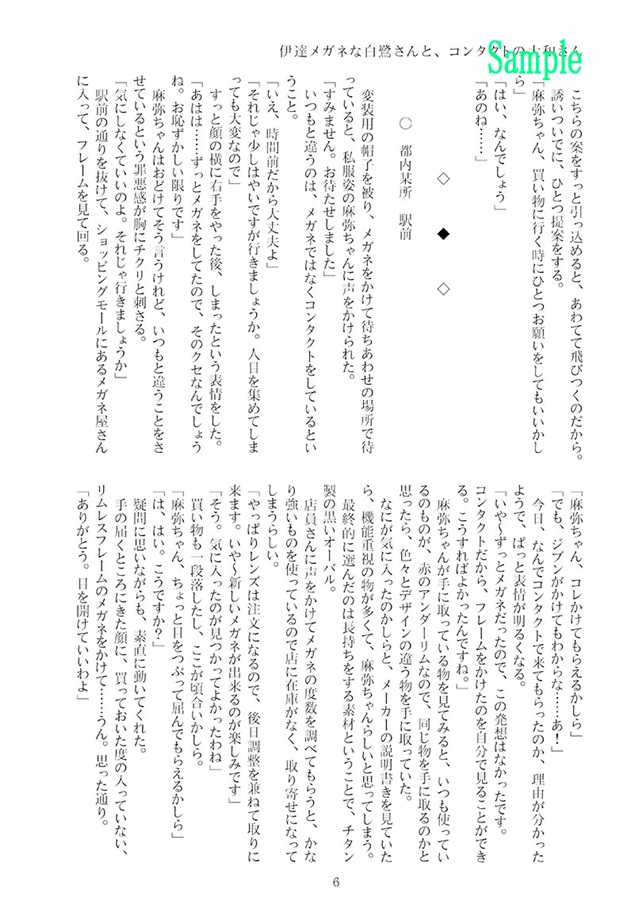 伊達メガネな白鷺さんと、コンタクトの大和さん
Sample
こちらの案をすっと引っ込めると、あわてて飛びつくのだから。
誘いついでに、ひとつ提案をする。
「麻弥ちゃん、買い物に行く時にひとつお願いをしてもいいかし
ら」
「はい、なんでしょう」
「あのね……」
◇　◆　◇
○　都内某所　駅前
変装用の帽子を被り、メガネをかけて待ちあわせの場所で待
っていると、私服姿の麻弥ちゃんに声をかけられた。
「すみません。お待たせしました」
いつもと違うのは、メガネではなくコンタクトをしているとい
うこと。
「いえ、時間前だから大丈夫よ」
「それじゃ少しはやいですが行きましょうか。人目を集めてしま
っても大変なので」
すっと顔の横に右手をやった後、しまったという表情をした。
「あはは……ずっとメガネをしてたので、そのクセなんでしょう
ね。お恥ずかしい限りです」
麻弥ちゃんはおどけてそう言うけれど、いつもと違うことをさ
せているという罪悪感が胸にチクリと刺さる。
「気にしなくていいのよ。それじゃ行きましょうか」
駅前の通りを抜けて、ショッピングモールにあるメガネ屋さん
に入って、フレームを見て回る。
「麻弥ちゃん、コレかけてもらえるかしら」
「でも、ジブンがかけてもわからな……あ！」
今日、なんでコンタクトで来てもらったのか、理由が分かった
ようで、ぱっと表情が明るくなる。
「いや～ずっとメガネだったので、この発想はなかったです。
コンタクトだから、フレームをかけたのを自分で見ることができ
る。こうすればよかったんですね。」
麻弥ちゃんが手に取っている物を見てみると、いつも使ってい
るのものが、赤のアンダーリムなので、同じ物を手に取るのかと
思ったら、色々とデザインの違う物を手に取っていた。
なにが気に入ったのかしらと、メーカーの説明書きを見ていた
ら、機能重視の物が多くて、麻弥ちゃんらしいと思ってしまう。
最終的に選んだのは長持ちをする素材ということで、チタン
製の黒いオーバル。
店員さんに声をかけてメガネの度数を調べてもらうと、かな
り強いものを使っているので店に在庫がなく、取り寄せになって
しまうらしい。
「やっぱりレンズは注文になるので、後日調整を兼ねて取りに
来ます。いや～新しいメガネが出来るのが楽しみです」
「そう。気に入ったのが見つかってよかったわね」
買い物も一段落したし、ここが頃合いかしら。
「麻弥ちゃん、ちょっと目をつぶって屈んでもらえるかしら」
「は、はい。こうですか？」
疑問に思いながらも、素直に動いてくれた。
手の届くところにきた顔に、買っておいた度の入っていない、
リムレスフレームのメガネをかけて……うん。思った通り。
「ありがとう。目を開けていいわよ」
6